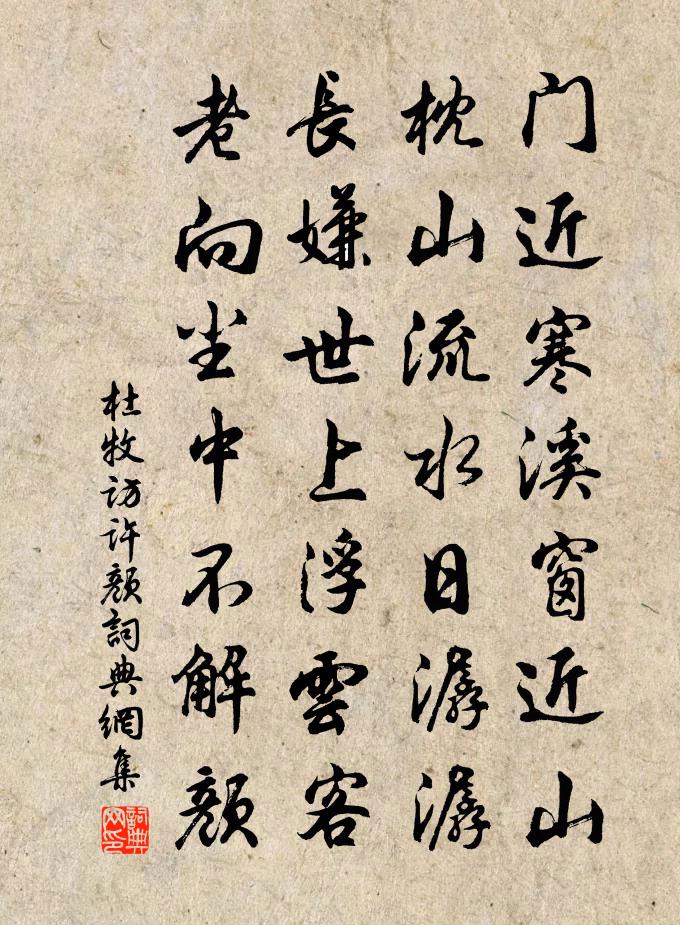 门近寒溪窗近山
枕山流水日潺潺
長嫌世上浮雲客
老向尘中不解颜
杜牧访许颜詞典網集
詞典网印